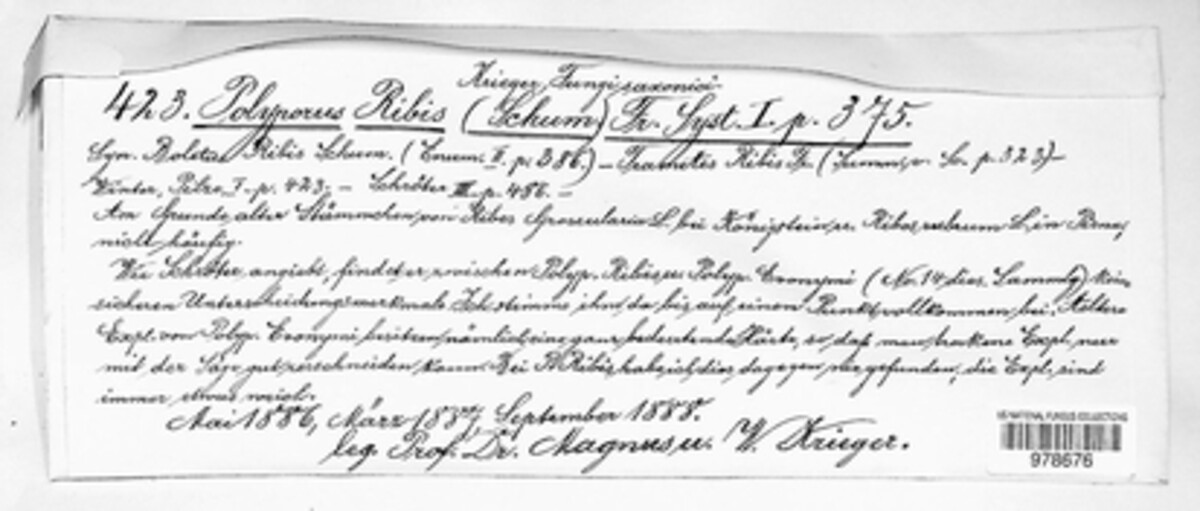 Krieger, Fungi saxonici
423. Polyporus Ribis (Schum.) Fr. Syst. I. p. 375.
Syn. Boletus Ribis Schum. (Enum. II. p. 386.) – Trametes Ribis Fr. (Summ. v. Sc. p. 323) –
Winter, Pilze I. p. 423. – Schröter III. p. 486. –
Am Grunde alter Stämmchen von Ribes Grossularia L. bei Königstein, u. Ribes rubrum L. in Pirna,
nicht häufig.
Wie Schröter angiebt, findet er zwischen Polyp. Ribis u. Polyp. Evonymi (No. 14 dies. Sammlg) kein
sicheren Unterscheidungsmerkmale. Ich stimme ihm da bis auf einen Punkt vollkommen bei. Aeltere
Expl. von Polyp. Evonymi besitzen nämlich eine ganz bedeutende Härte, so daß man trockene Expl. nur
mit der Säge gut zerschneiden kann. Bei P. Ribis habe ich dies dagegen nie gefunden, die Expl. sind
immer etwas weich.
Mai 1886, März 1887, September 1888.
leg. Prof. Dr. Magnus u. W. Krieger.
US NATIONAL FUNGUS COLLECTIONS
978676